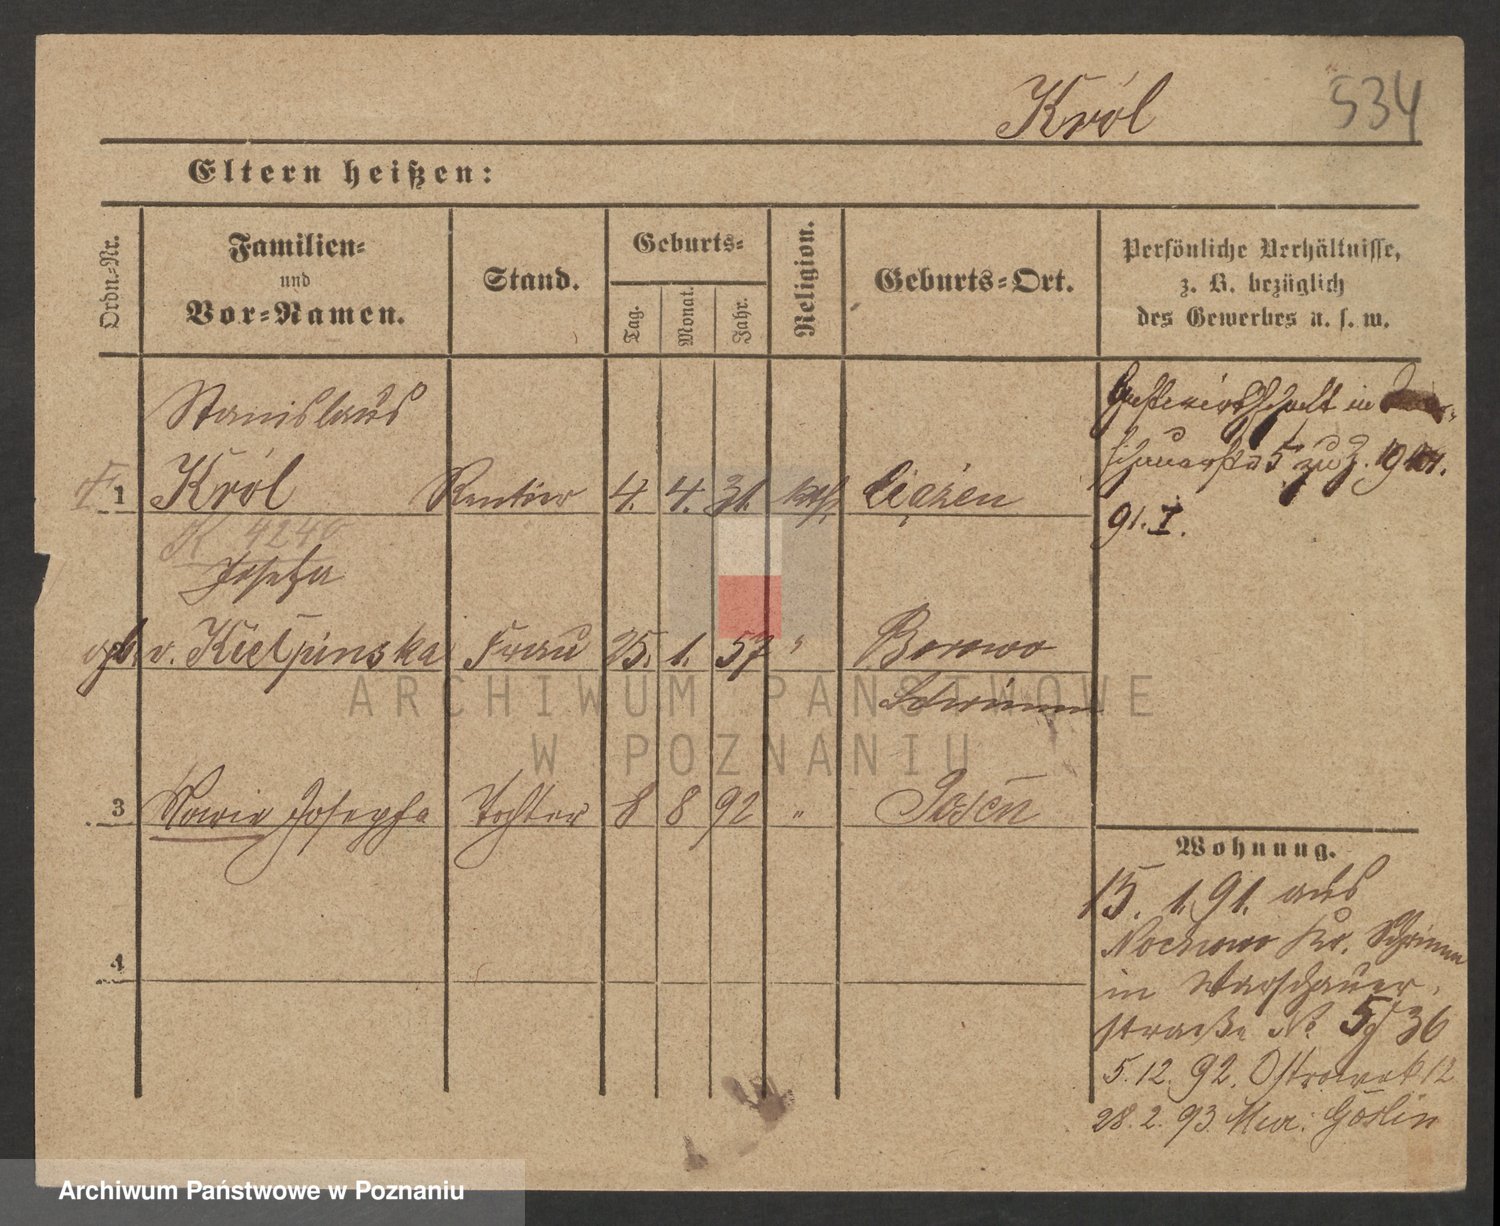 Król 534
Eltern heißen:
Ordn.-Nr.
Familien-
und
Vor-Namen.
Stand.
Geburts-
Tag.
Monat.
Jahr.
Religion.
Geburts-Ort.
Persönliche Verhältnisse,
z. B. bezüglich
des Gewerbes u. s. w.
Stanislaus
1 Król Rentier 4. 4. 31. kath. Ciążen
K 4240
Josefa
gb. v. Kielpinska Frau 25. 1. 57 " Borowo
Schrimm
3 Maria Josepha Tochter 8 8 92 " Posen
4
Gastwirthschaft in
5 z. 1. 1.
91. I.
Wohnung.
15. 1. 91. aus
Nochowo Kr. Schrimm
in Warschauer-
straße No 5/36
5. 12. 92. Ostrowek 12
28. 2. 93. Mur. Goslin
ARCHIWUM PAŃSTWOWE
W POZNANIU
Archiwum Państwowe w Poznaniu